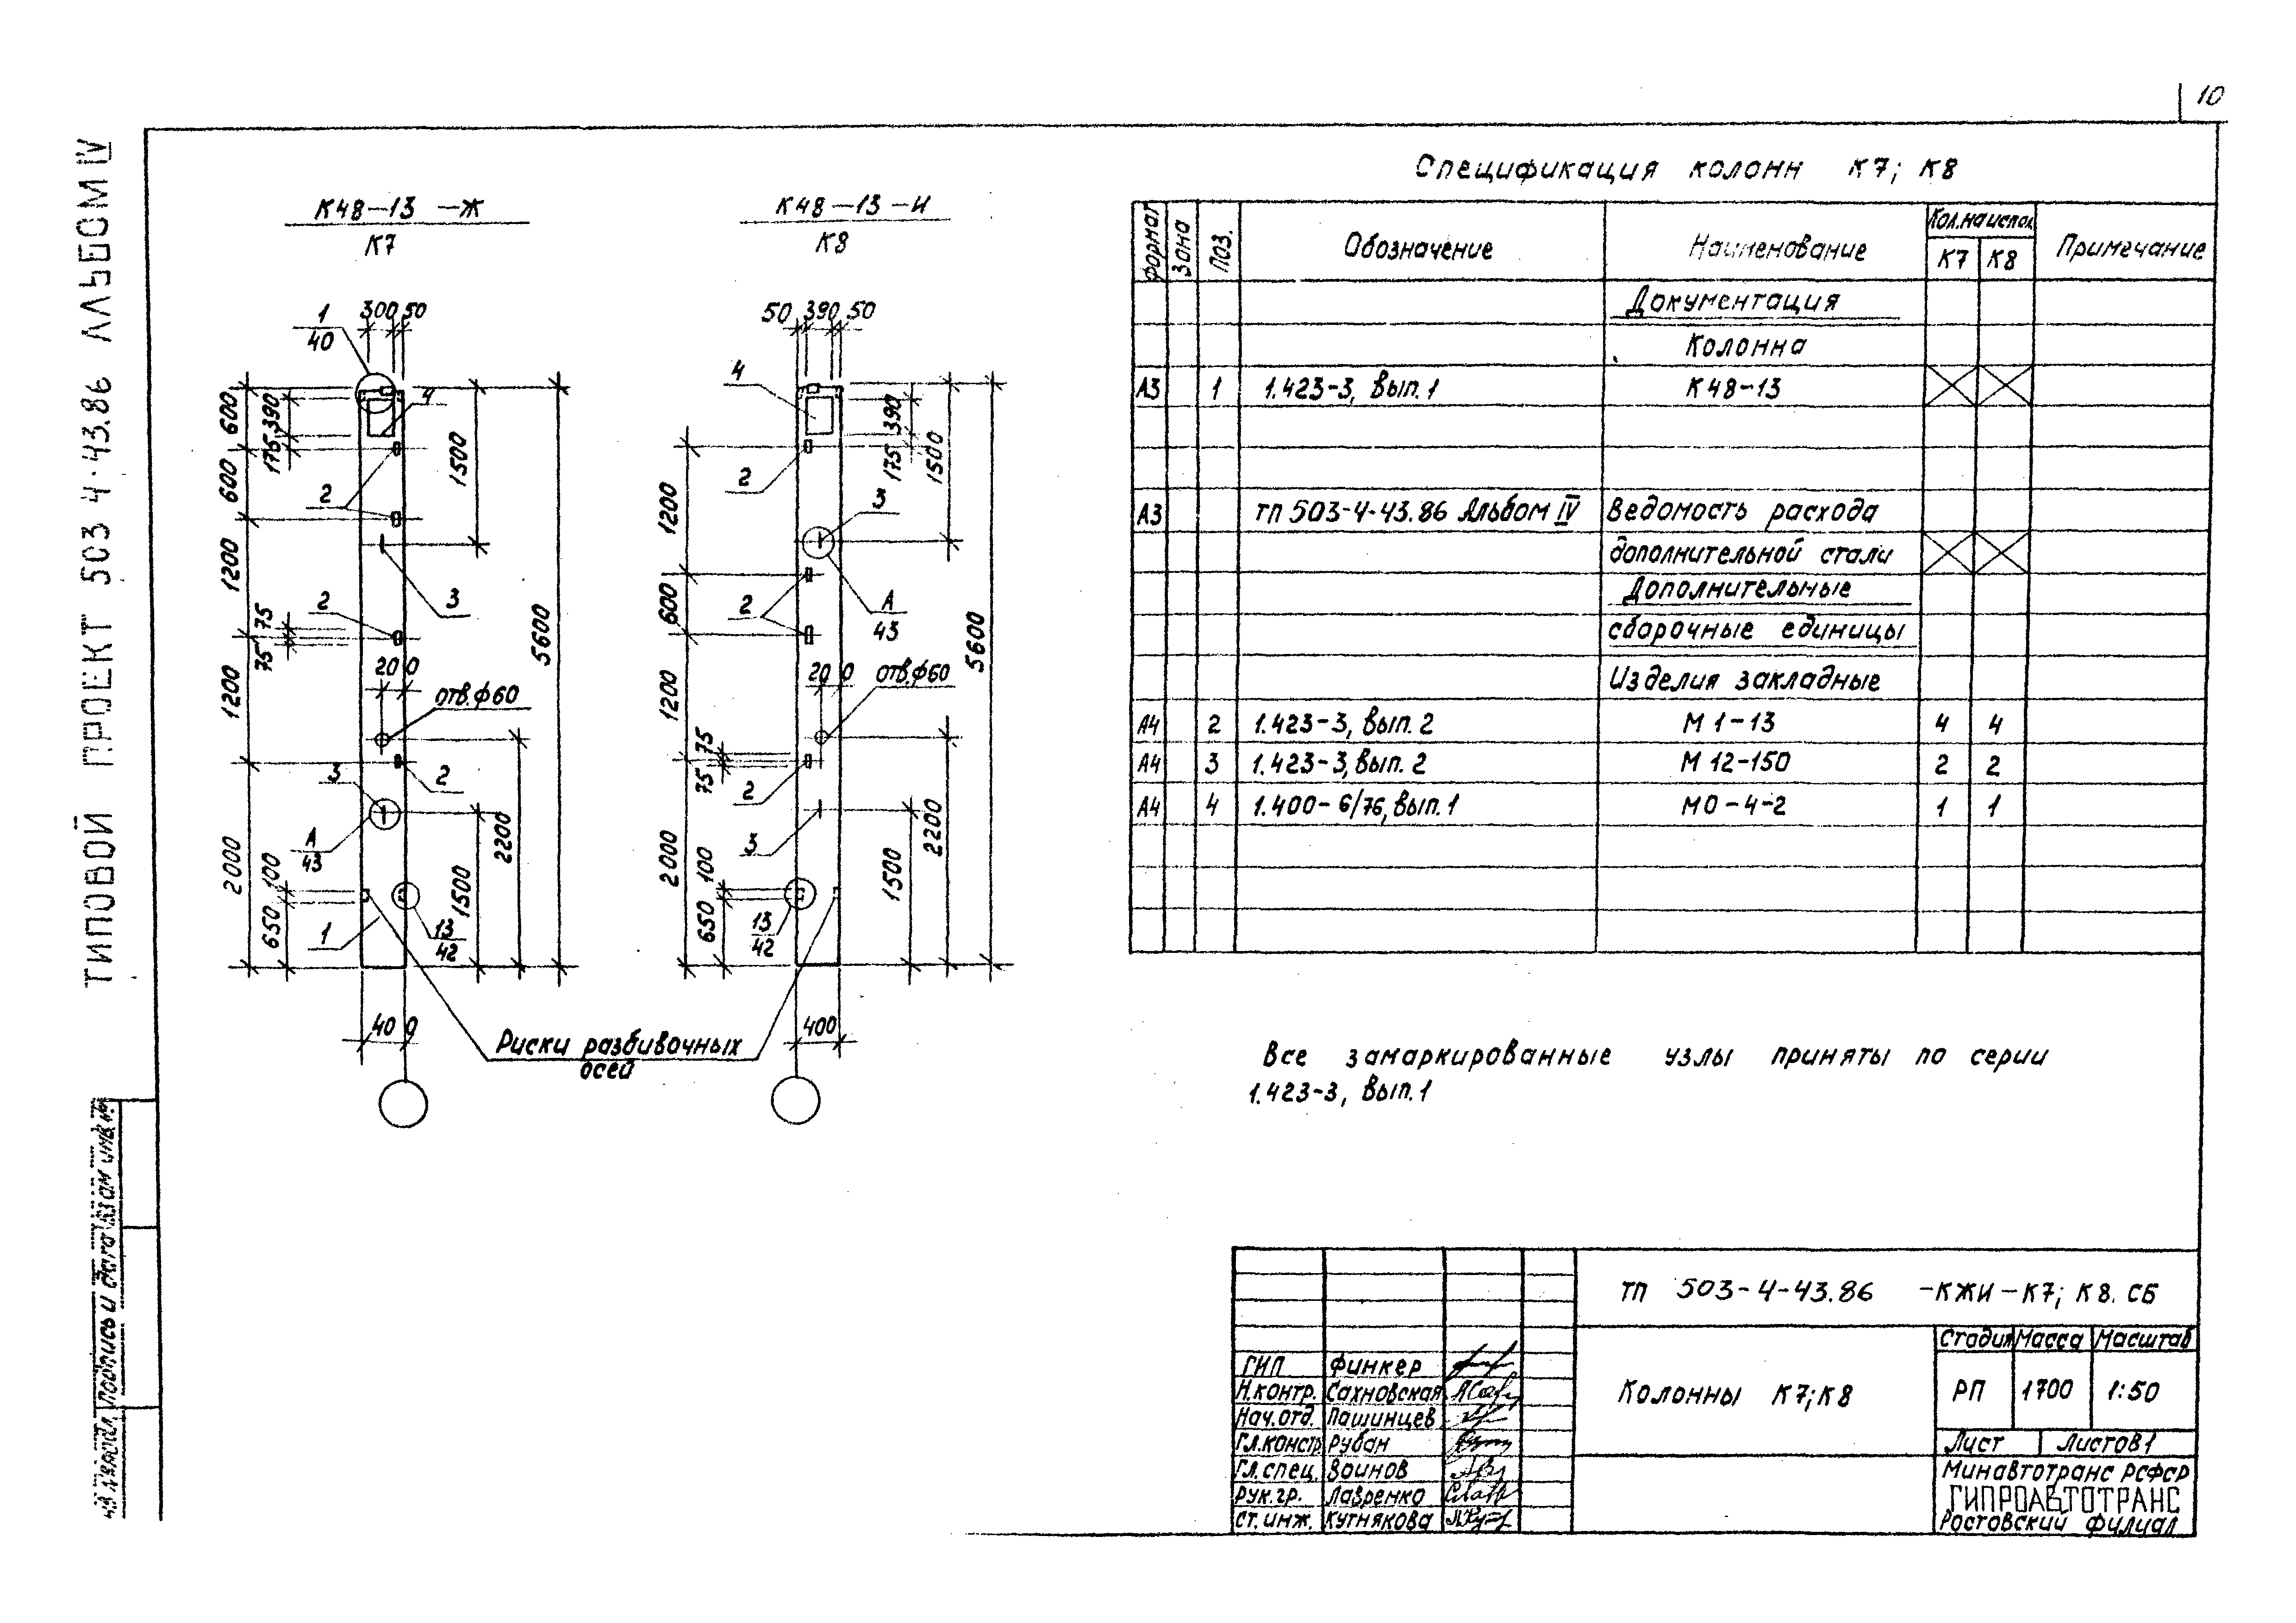 10
ТИПОВОЙ ПРОЕКТ 503 4-43.86 АЛЬБОМ IV
К48-13 -Ж
К7
К48-13 -И
К8
1
40
300 50
4
600
175 390
600
1500
2
1200
3
2
75
75
5600
1200
20 0
отв.ф60
3
2
А
43
2000
100
650
1
1500
2200
13
42
40 0
50 390 50
4
390
175
1500
2
3
1200
2
А
43
600
5600
20 0
отв.ф60
1200
75
75
2
3
2000
100
650
13
42
1500
2200
400
Риски разбивочных
осей
Спецификация колонн К7; К8
Формат Зона Поз. Обозначение Наименование Кол.на испол. Примечание
К7 К8
Документация
Колонна
А3 1 1.423-3, Вып.1 К48-13
А3 ТП 503-4-43.86 Альбом IV Ведомость расхода
дополнительной стали
Дополнительные
сборочные единицы
Изделия закладные
А4 2 1.423-3, Вып. 2 М 1-13 4 4
А4 3 1.423-3, Вып. 2 М 12-150 2 2
А4 4 1.400-6/76, Вып.1 МО-4-2 1 1
Все замаркированные узлы приняты по серии
1.423-3, Вып.1
ТП 503-4-43.86 -КЖИ-К7; К8. СБ
Колонны К7;К8
Стадия Масса Масштаб
РП 1700 1:50
Лист Листов1
Минавтотранс РСФСР
ГИПРОАВТОТРАНС
Ростовский филиал
ГИП Финкер
Н.контр. Сахновская
Нач.отд. Пашинцев
Гл.констр. Рубан
Гл.спец. Воинов
Рук.гр. Лавренко
Ст.инж. Кутнякова
Подпись и дата
Взам инв.№